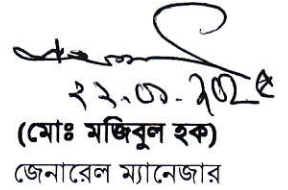 ২২.০০.২০২৫
(মোঃ মজিবুল হক)
জেনারেল ম্যানেজার